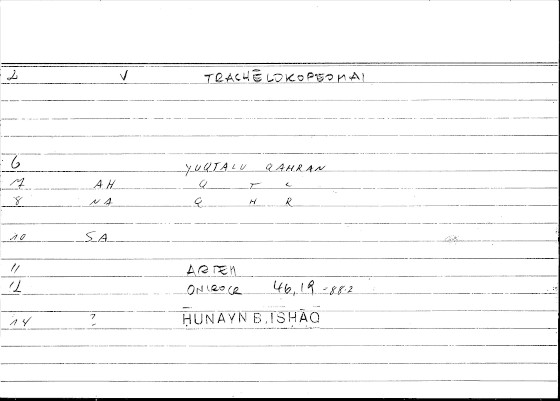 2 V TRACHĒLOKOPEOMAI
6 YUQTALU QAHRAN
7 AH Q T L
8 NA Q H R
10 SA
11 ARTEM
12 ONIROCR 46,19 -88.2
14 ? ḤUNAYN B. ISḤĀQ